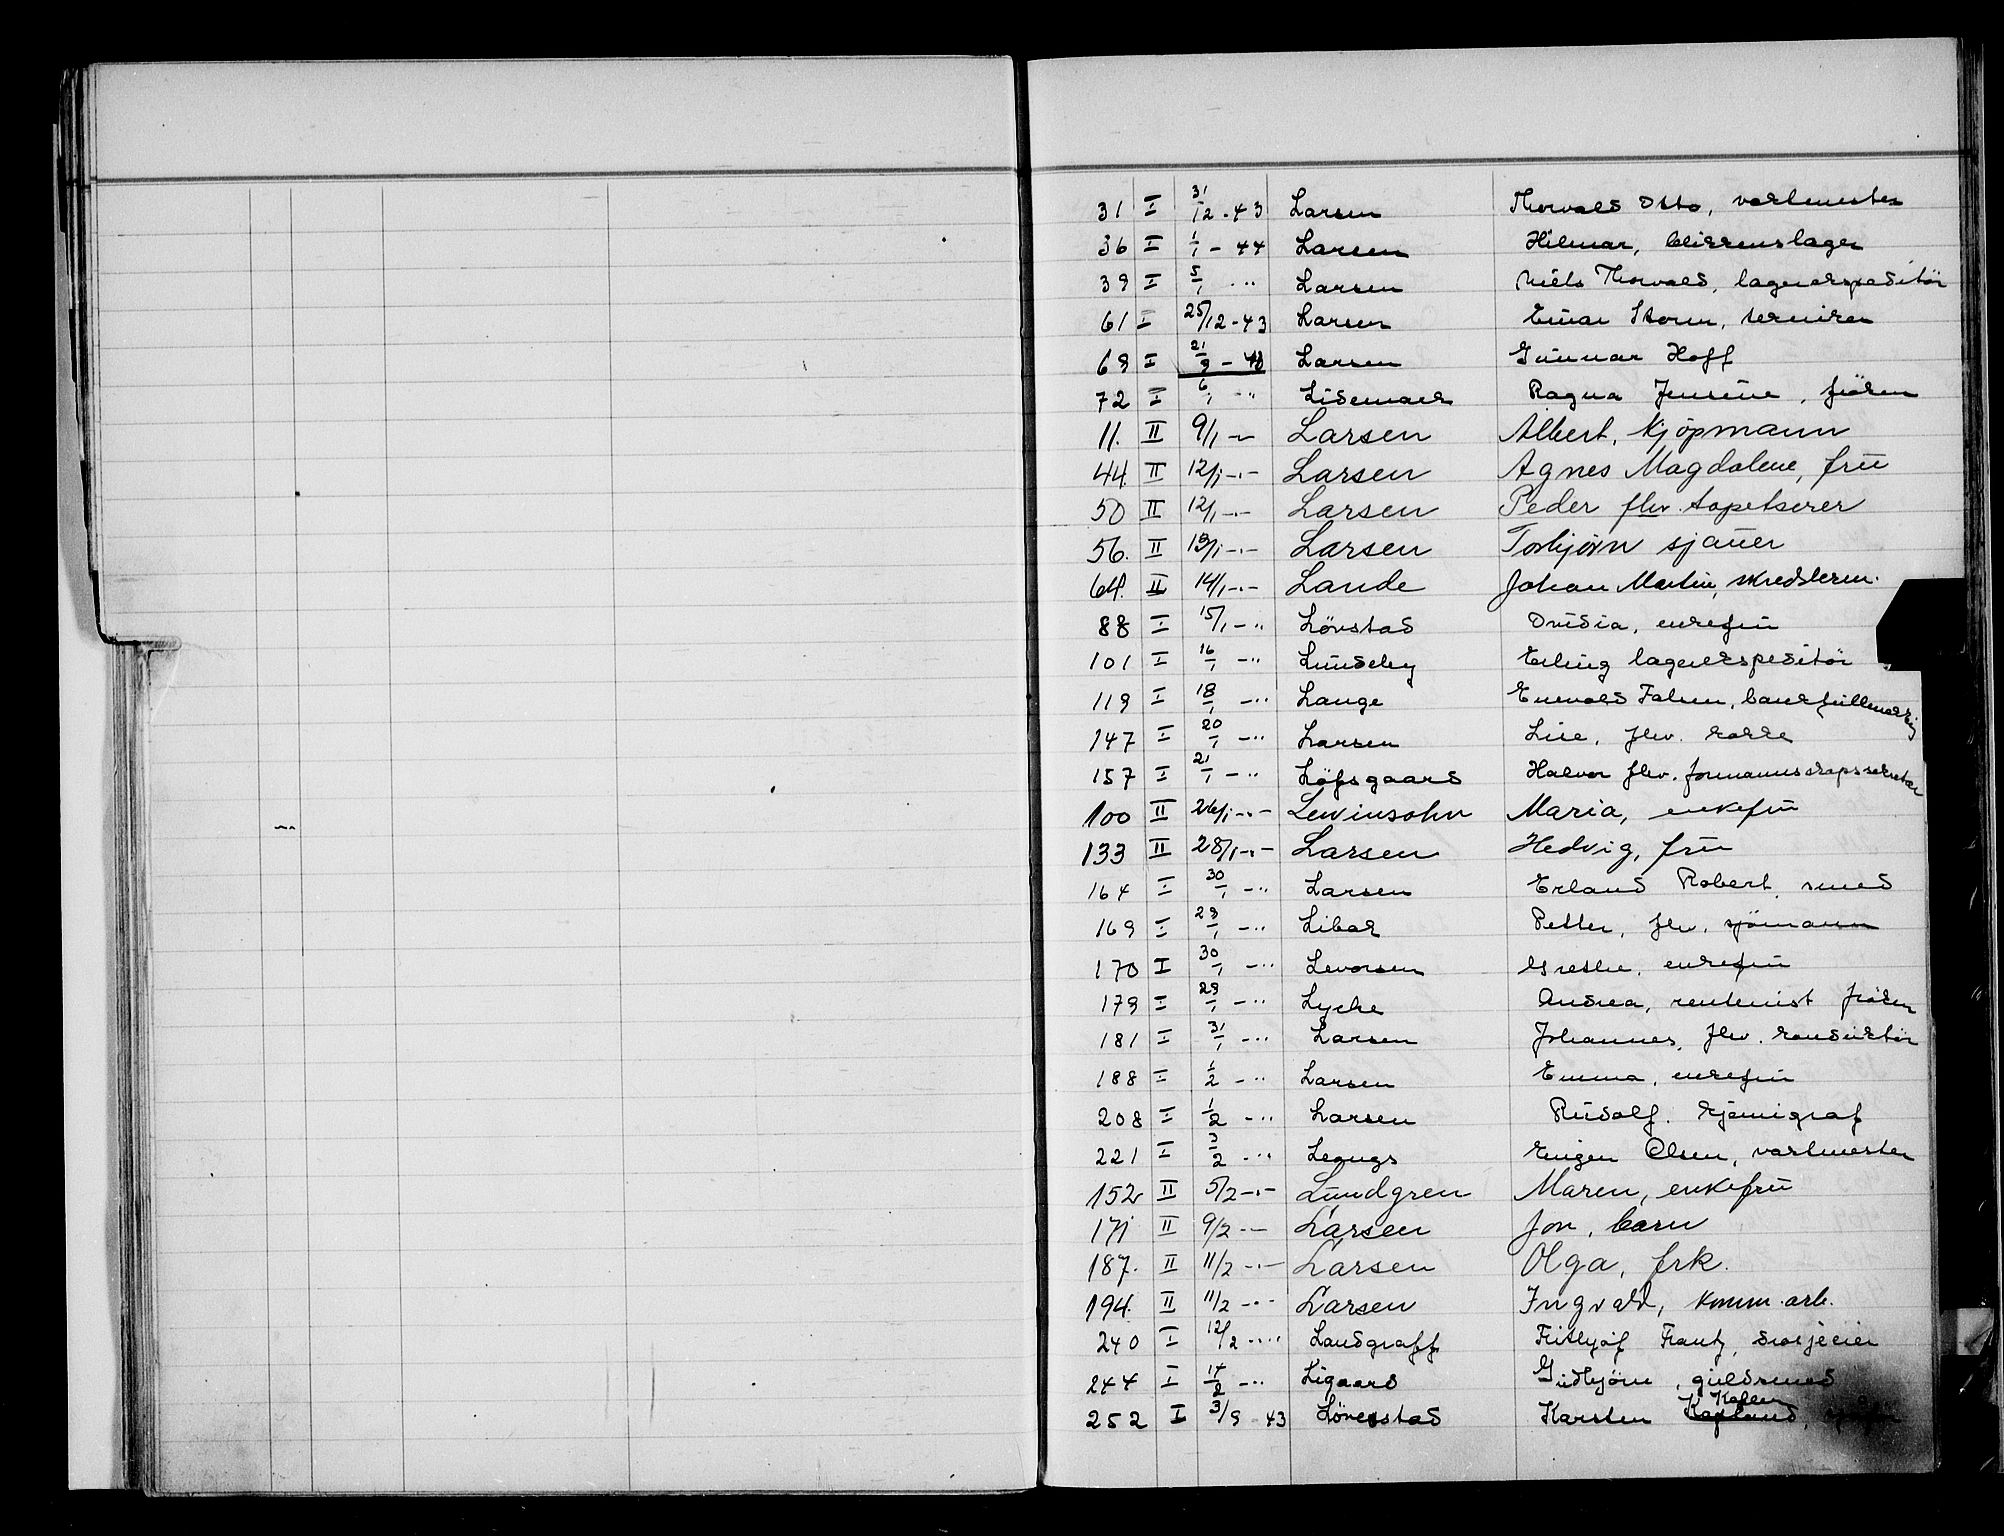 31 I 31/12-43 Larsen Thorvald Otto, vaktmester
36 I 1/1-44 Larsen Hilmar, blikkenslager
39 I 5/1 -"- Larsen Niels Thorvald, lagerekspeditör
61 I 25/12-43 Larsen Einar Storm, tekniker
69 I 21/9-43 Larsen Gunnar Hoff
72 I 6/1 -"- Lidemark Ragna Jensine, fröken
11. II 9/1 -"- Larsen Albert, kjöpmann
44. II 12/1 -"- Larsen Agnes Magdalene, fru
50 II 12/1 -"- Larsen Peder flv. tapetserer
56. II 13/1 -"- Larsen Torbjörn sjauer
64. II 14/1 -"- Lande Johan Martin, skredderm.
88 I 15/1 -"- Lövstad Ovidia, enkefru
101 I 16/1 -"- Lundeby Erling lagerekspeditör
119 I 18/1 -"- Lange Enevold Falsen, bankfullmektig
147 I 20/1 -"- Larsen Lise, flv. kokke
157 I 21/1 -"- Löfsgaard Halvor flv. formannskapssekretær
100 II 26/1 -"- Levinsohn Maria, enkefru
133 II 28/1 -"- Larsen Hedvig, fru
164 I 30/1 -"- Larsen Erland Robert, smed
169 I 29/1 -"- Libak Petter, flv. sjömann
170 I 30/1 -"- Levorsen Grethe, enkefru
179 I 29/1 -"- Lyche Andrea, rentenist fröken
181 I 31/1 -"- Larsen Johannes, flv. konduktör
188 I 1/2 -"- Larsen Emma, enkefru
208 I 1/2 -"- Larsen Rudolf. kjemigraf
221 I 3/2 -"- Legugs Eugen Olsen, vaktmester
152 II 5/2 -"- Lundgren Maren, enkefru
171 II 9/2 -"- Larsen Jon, barn
187. II 11/2 -"- Larsen Olga, frk.
194. II 11/2 -"- Larsen Ingvald, komm. arb.
240 I 12/2 -"- Landgraff Fritjof Frantz, drosjeeier
244 I 14/2 -"- Ligaard Gudbjörn, guldsmed
252 I 3/9-43 Lövestad Karsten Kaplen